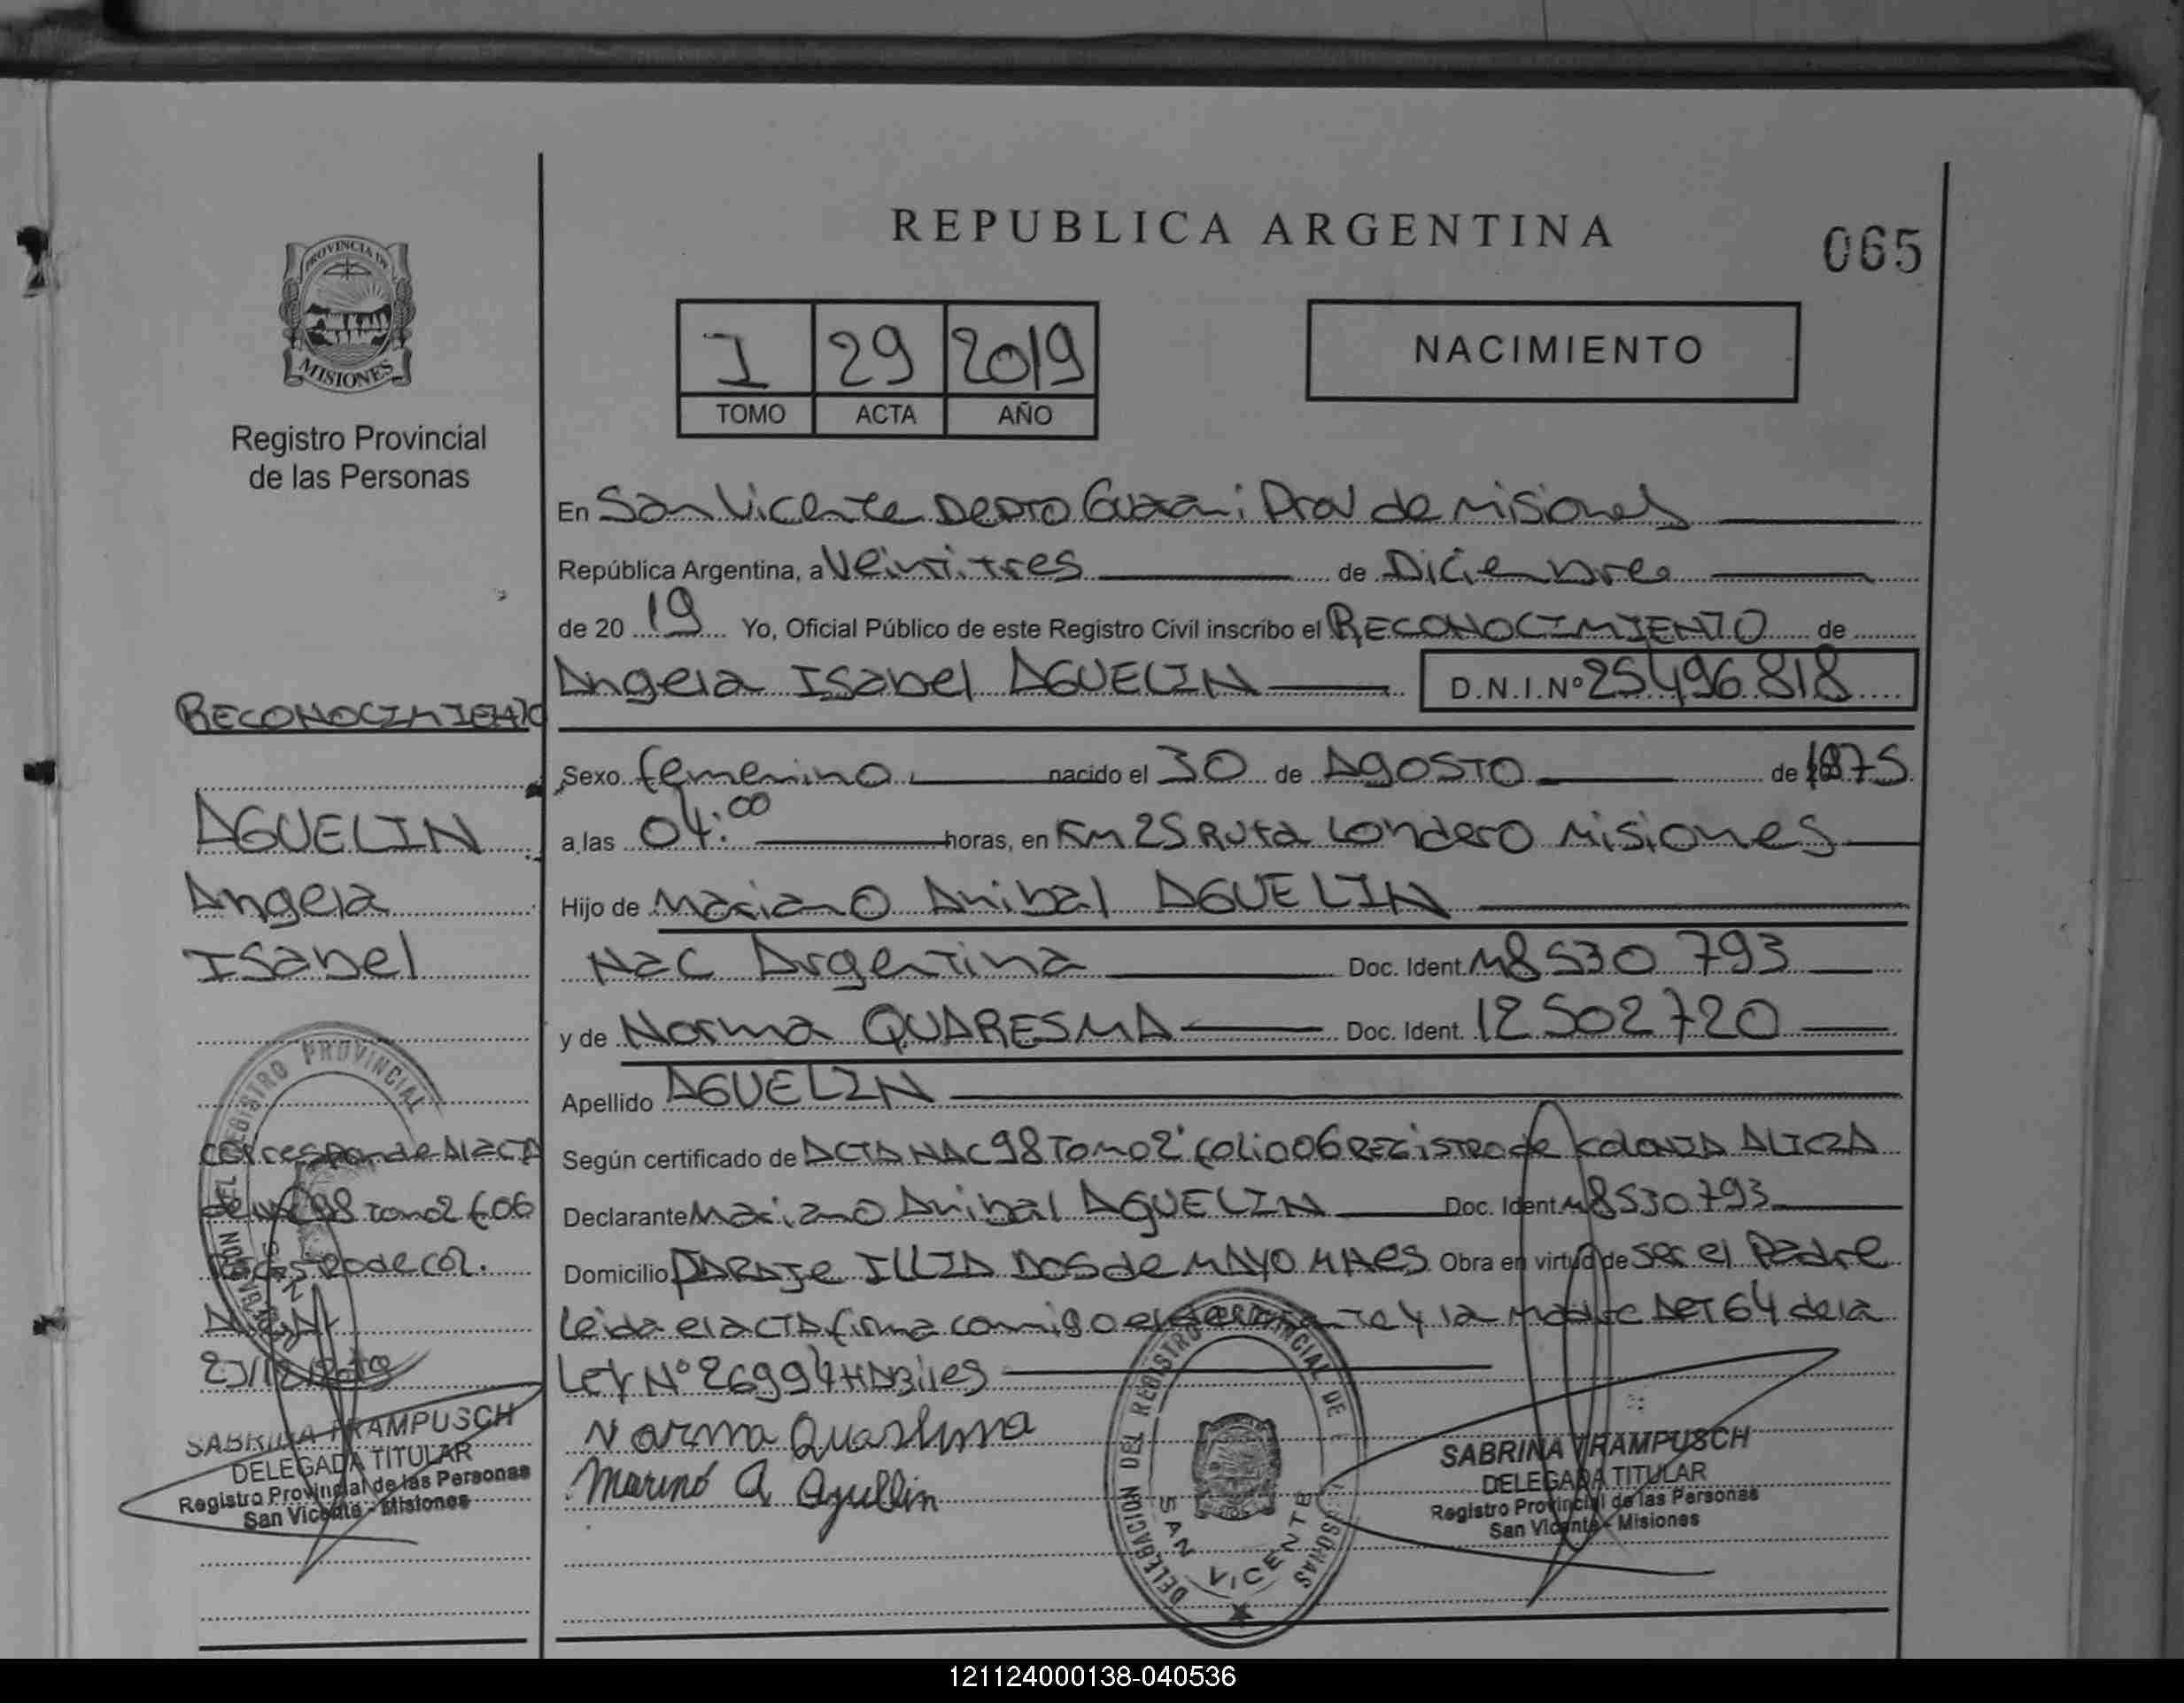 REPUBLICA ARGENTINA
065
PROVINCIA DE
MISIONES
Registro Provincial
de las Personas
I 29 2019
TOMO ACTA AÑO
NACIMIENTO
En San Vicente Depto Guarani Prov de Misiones
República Argentina, a Veintitres de Diciembre
de 20 19 Yo, Oficial Público de este Registro Civil inscribo el RECONOCIMIENTO de
Angela Isabel AGUELIN D.N.I. Nº 25496818
Sexo femenino nacido el 30 de AGOSTO de 1975
a las 04:00 horas, en KM 25 Ruta Londero Misiones
Hijo de Mariano Anibal AGUELIN
Nac Argentina Doc. Ident. M8530793
y de Norma QUARESMA Doc. Ident. 12502720
Apellido AGUELIN
Según certificado de ACTA NAC 98 Tomo 2º folio 06 REGISTRO de COLONIA ALICIA
Declarante Mariano Anibal AGUELIN Doc. Ident. M8530793
Domicilio PARAJE ILLIA DOS de MAYO MNES Obra en virtud de ser el Padre
Leida el ACTA firma conmigo el declarante y la madre ART 64 de la
Ley Nº 26994 HABiles
Norma Quaresma
Marino A Aguellin
RECONOCIMIENTO
AGUELIN
Angela
Isabel
corresponde Al ACTA
de NAC 98 Tomo 2 f 06
Registro de Col.
23/12/2019
SABRINA TRAMPUSCH
DELEGADA TITULAR
Registro Provincial de las Personas
San Vicente - Misiones
DELEGACION DEL REGISTRO PROVINCIAL DE
SAN VICENTE
SABRINA TRAMPUSCH
DELEGADA TITULAR
Registro Provincial de las Personas
San Vicente - Misiones
121124000138-040536